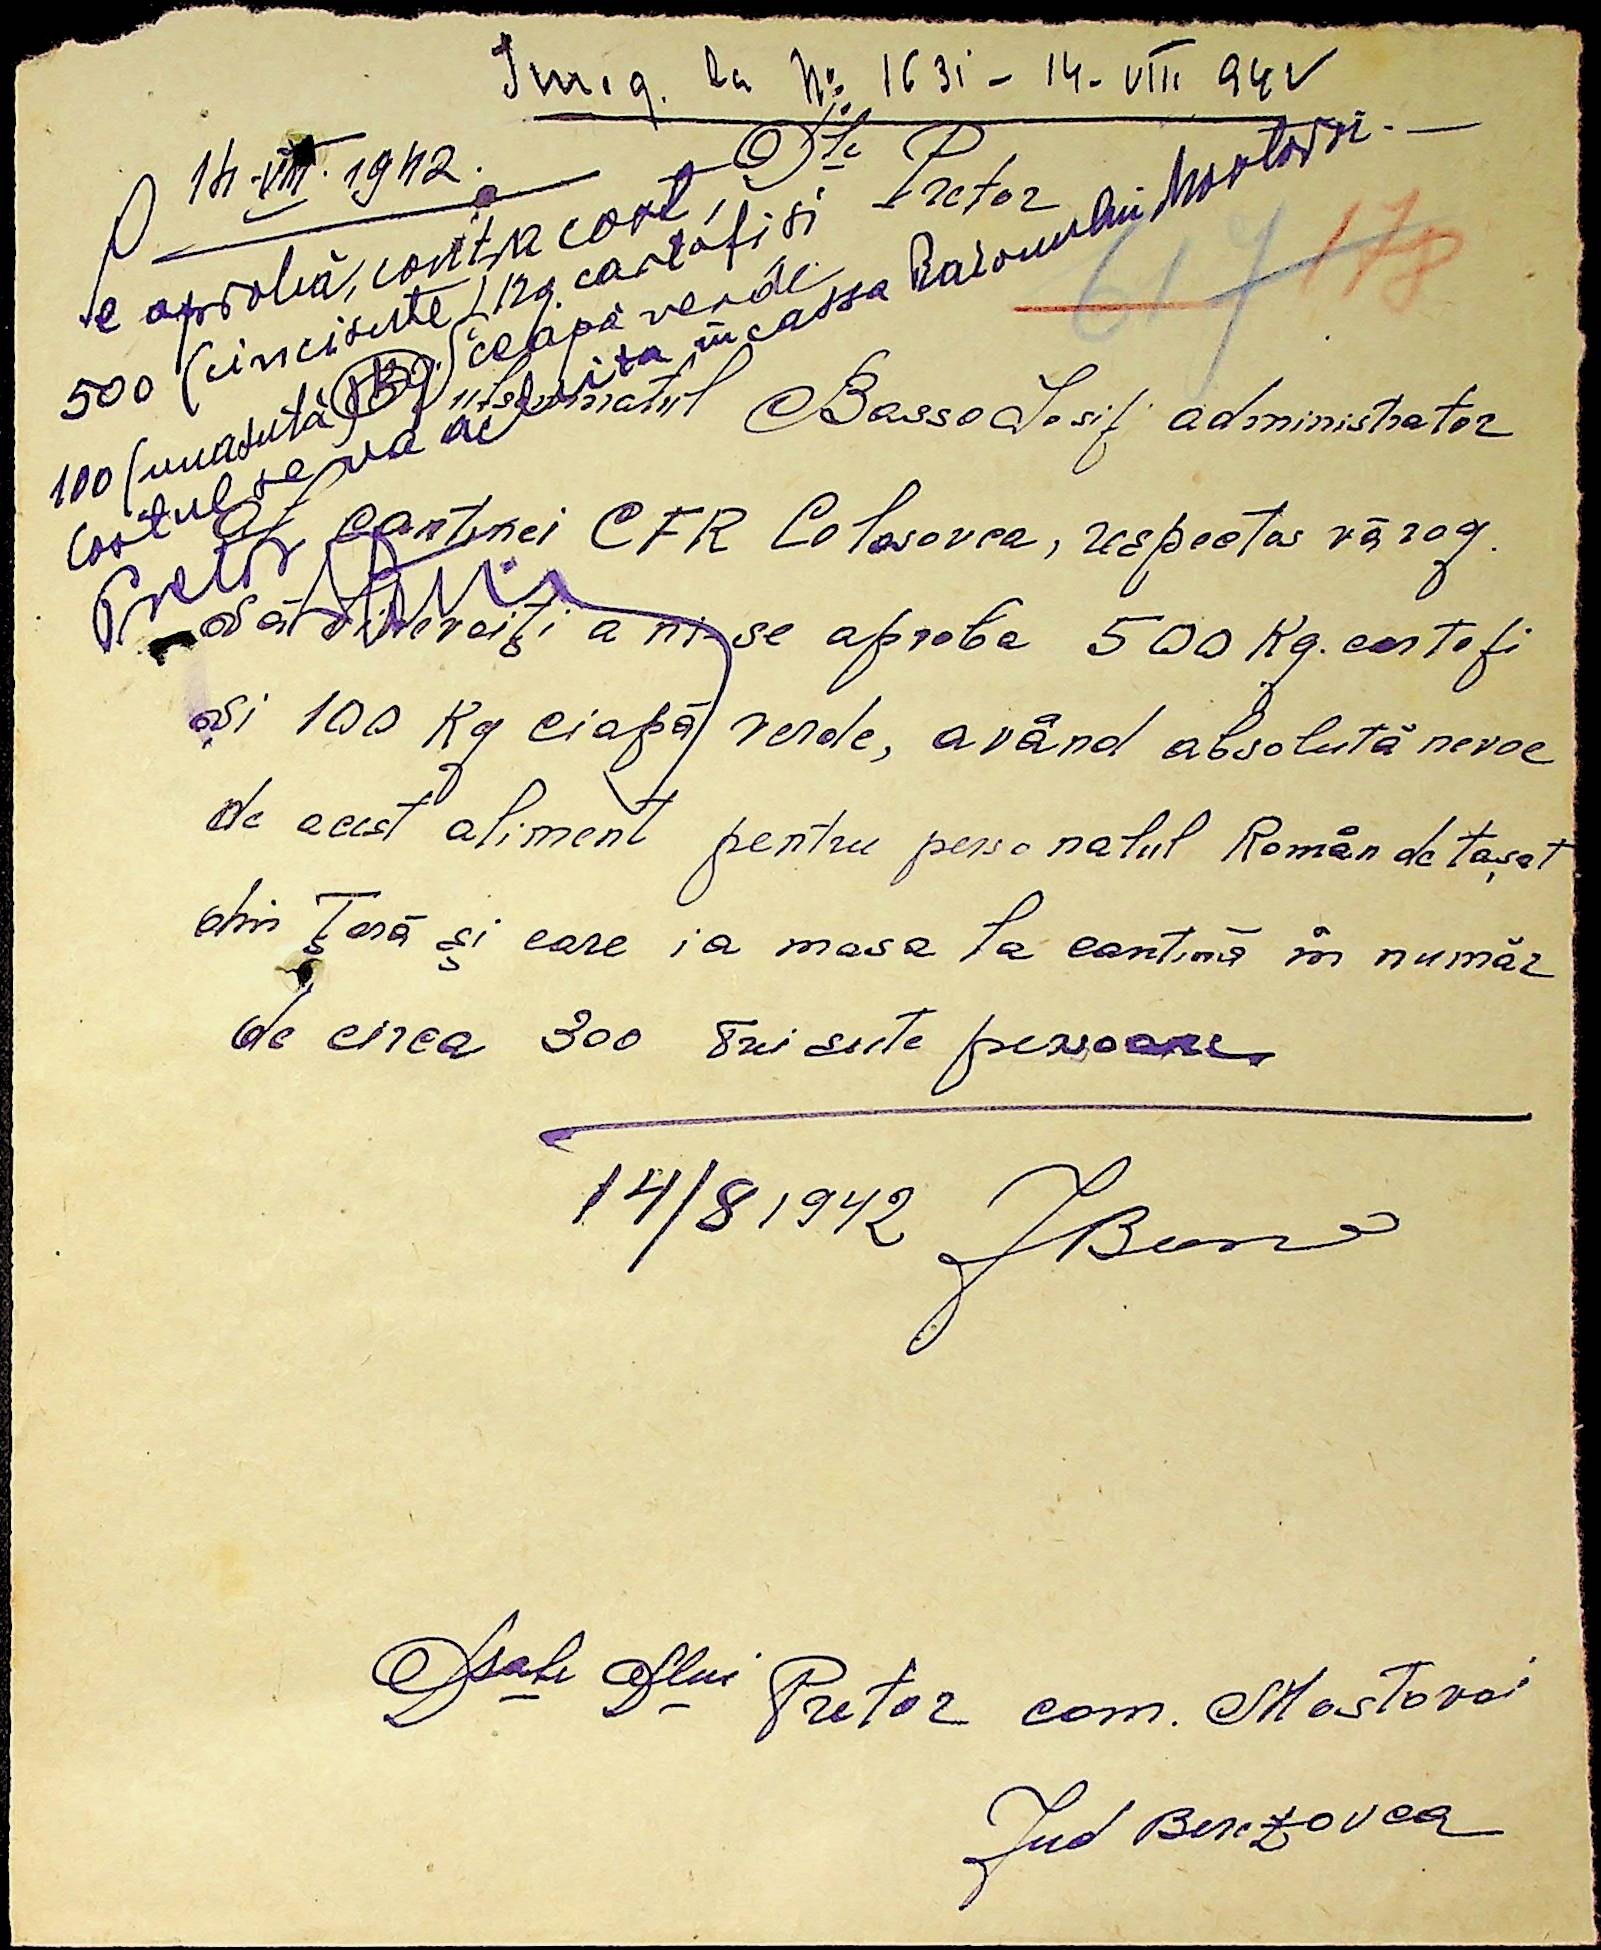 Inreg. La No. 1631 - 14 - VIII 942
14. VIII. 1942.
Se aprobă, contra cost,
500 (cincisute) kg. cartofi și
100 (unasută) kg. ceapă verde.
Costul se va achita în cassa Raionului Mostovoi. -
Pretor
Dle Pretor
617 178
Subsemnatul Basso Iosif administrator
al cantinei CFR Colosovca, respectos vă rog.
să binevoiți a ni-se aproba 500 Kg. cartofi
și 100 Kg ciapă verde, având absolută nevoe
de acest aliment pentru personalul Român detașat
din Țară și care ia masa la cantină în număr
de circa 300 trei sute persoane.
14/8 1942
Dsale Dlui Pretor com. Mostovoi
Jud Berezovca